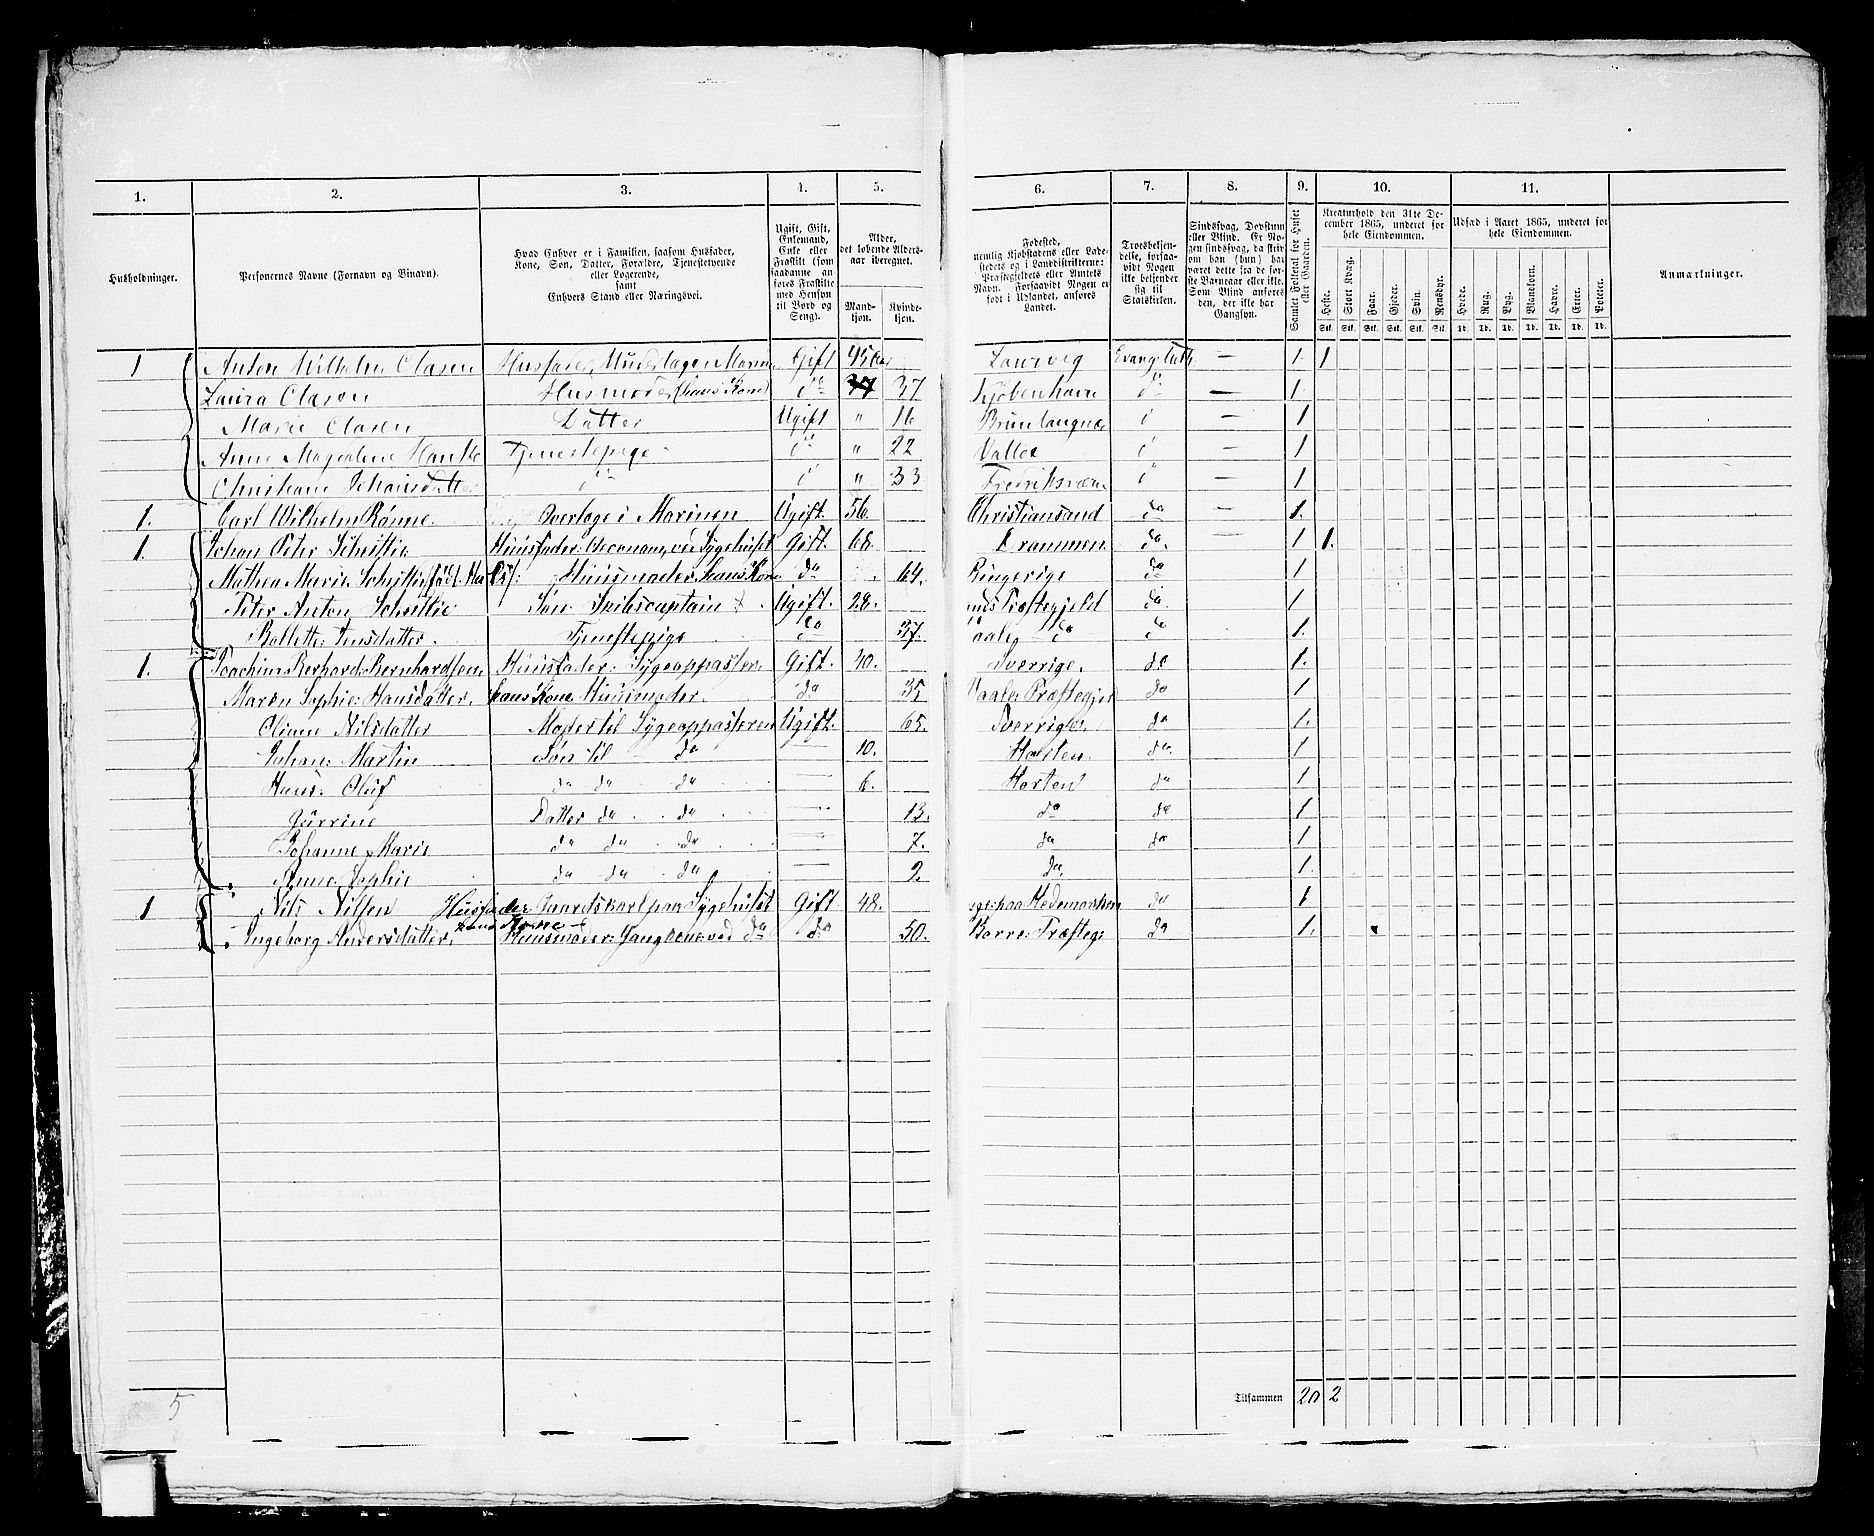 1. 2. 3. 4. 5. 6. 7. 8. 9. 10. 11.
Husholdninger.
Personernes Navne (Fornavn og Binavn).
Hvad Enhver er i Familien, saasom Husfader, Kone, Søn, Datter, Forældre, Tjenestetyende eller Logerende, samt Enhvers Stand eller Næringsvei.
Ugift, Gift, Enkemand, Enke eller Fraskilt (som saadanne anføres Fraskilte med Hensyn til Bord og Seng).
Alder, det løbende Aldersaar iberegnet.
Mandkjøn. Kvindekjøn.
Fødested, nemlig Kjøbstadens eller Ladestedets og i Landdistrikterne: Præstegjeldets eller Amtets Navn. Forsaavidt Nogen er født i Udlandet, anføres Landet.
Troesbekjendelse, forsaavidt Nogen ikke bekjender sig til Statskirken.
Sindssvag, Døvstum eller Blind. Er Nogen sindssvag, da skriv om han (hun) har været dette fra de første Barneaar eller ikke. Som Blind anføres den, der ikke har Gangsyn.
Samlet Folketal for Huset eller Gaarden.
Kreaturhold den 31te December 1865, underet for hele Eiendommen.
Heste. Stort Kvæg. Faar. Gjeder. Svin. Rensdyr.
Udsæd i Aaret 1865, underet for hele Eiendommen.
Hvede. Rug. Byg. Blandkorn. Havre. Erter. Poteter.
Anmærkninger.
1 Anton Wilhelm Clasen Husfader, Underlæge i Marinen Gift 45 Aar Laurvig Evang. Luth. — 1. 1
Laura Clasen Husmoder (hans Kone) do 37 37 Kjöbenhavn do — 1
Marie Clasen Datter Ugift " 16 — 1
Anne Magdalene Tjenestepige " 22 Valløe — 1
Christiane Johansdatter " 33 Fredriksværn — 1
1. Carl Wilhelm Rönne. Overlæge i Marinen Ugift. 56. Christiansand do — 1.
1. Johan Peter Schiøttie Huusfader: Oeconom, ved Sygehuset Gift. 68. Drammen. do. 1 1.
Mathea Marie Huusmoder, hans Kone do 64. Ringerige do 1
Peter Anton Søn: Skibscaptain Ugift. 28. Præstegjeld do 1
Bollette: Jensdatter. Tjenestepige do 37. do do 1.
1. Joachim: Berhard: Bernhardsen Huusfader: Sygeoppasser Gift. 40. Sverrige. do 1.
Maren Sophie: Hansdatter. hans Kone Huusmoder. do 35 Vaale: Præstegjel do 1
Oliane Nilsdatter Moder til Sygeoppasseren Ugift. 65. Sverrige. do 1.
Johan: Martin Søn til do — 10. Horten. do. 1
Hans: Oluf do do do 6. Horten do 1
Datter do do — 13. do do 1
Johanne Marie do do do — 7. do do 1
Anne: Sophie do do do — 2. do. 1.
1 Nils Nilsen Husfader Gaardskarl paa Sygehuset Gift 48. paa Hedemarken do 1
Ingeborg Andersdatter. hans Kone Huusmoder: Gangkone ved do do 50. Borre: Præsteg: do 1.
5
Tilsammen 20 2